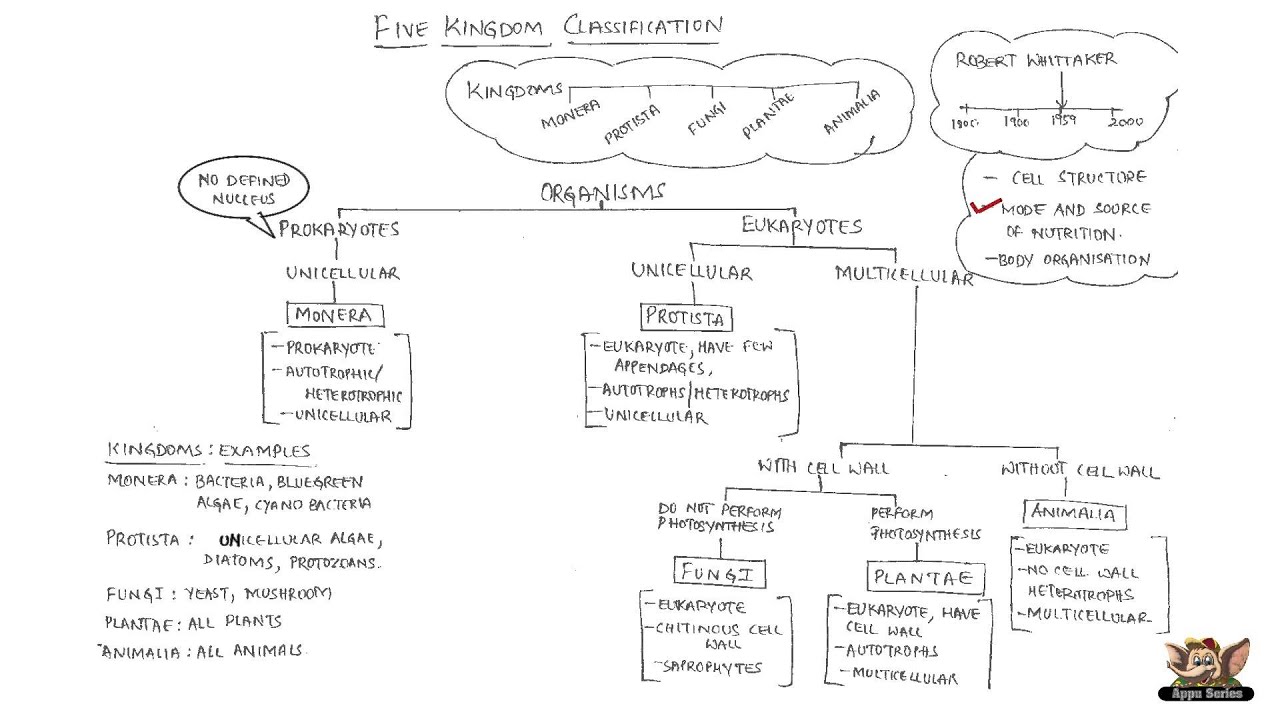 FIVE KINGDOM CLASSIFICATION
KINGDOMS
MONERA
PROTISTA
FUNGI
PLANTAE
ANIMALIA
ROBERT WHITTAKER
1800 1900 1959 2000
- CELL STRUCTURE
✓ MODE AND SOURCE
OF NUTRITION.
- BODY ORGANISATION
NO DEFINED
NUCLEUS
ORGANISMS
PROKARYOTES
EUKARYOTES
UNICELLULAR
UNICELLULAR
MULTICELLULAR
MONERA
- PROKARYOTE
- AUTOTROPHIC/
HETEROTROPHIC
- UNICELLULAR
PROTISTA
- EUKARYOTE, HAVE FEW
APPENDAGES,
- AUTOTROPHS/HETEROTROPHS
- UNICELLULAR
WITH CELL WALL
WITHOUT CELL WALL
DO NOT PERFORM
PHOTOSYNTHESIS
PERFORM
PHOTOSYNTHESIS
ANIMALIA
- EUKARYOTE
- NO CELL WALL
HETEROTROPHS
- MULTICELLULAR
FUNGI
- EUKARYOTE
- CHITINOUS CELL
WALL
- SAPROPHYTES
PLANTAE
- EUKARYOTE, HAVE
CELL WALL
- AUTOTROPHS
- MULTICELLULAR
KINGDOMS : EXAMPLES
MONERA : BACTERIA, BLUEGREEN
ALGAE, CYANO BACTERIA
PROTISTA : UNICELLULAR ALGAE,
DIATOMS, PROTOZOANS.
FUNGI : YEAST, MUSHROOM
PLANTAE : ALL PLANTS
ANIMALIA : ALL ANIMALS.
Appu Series